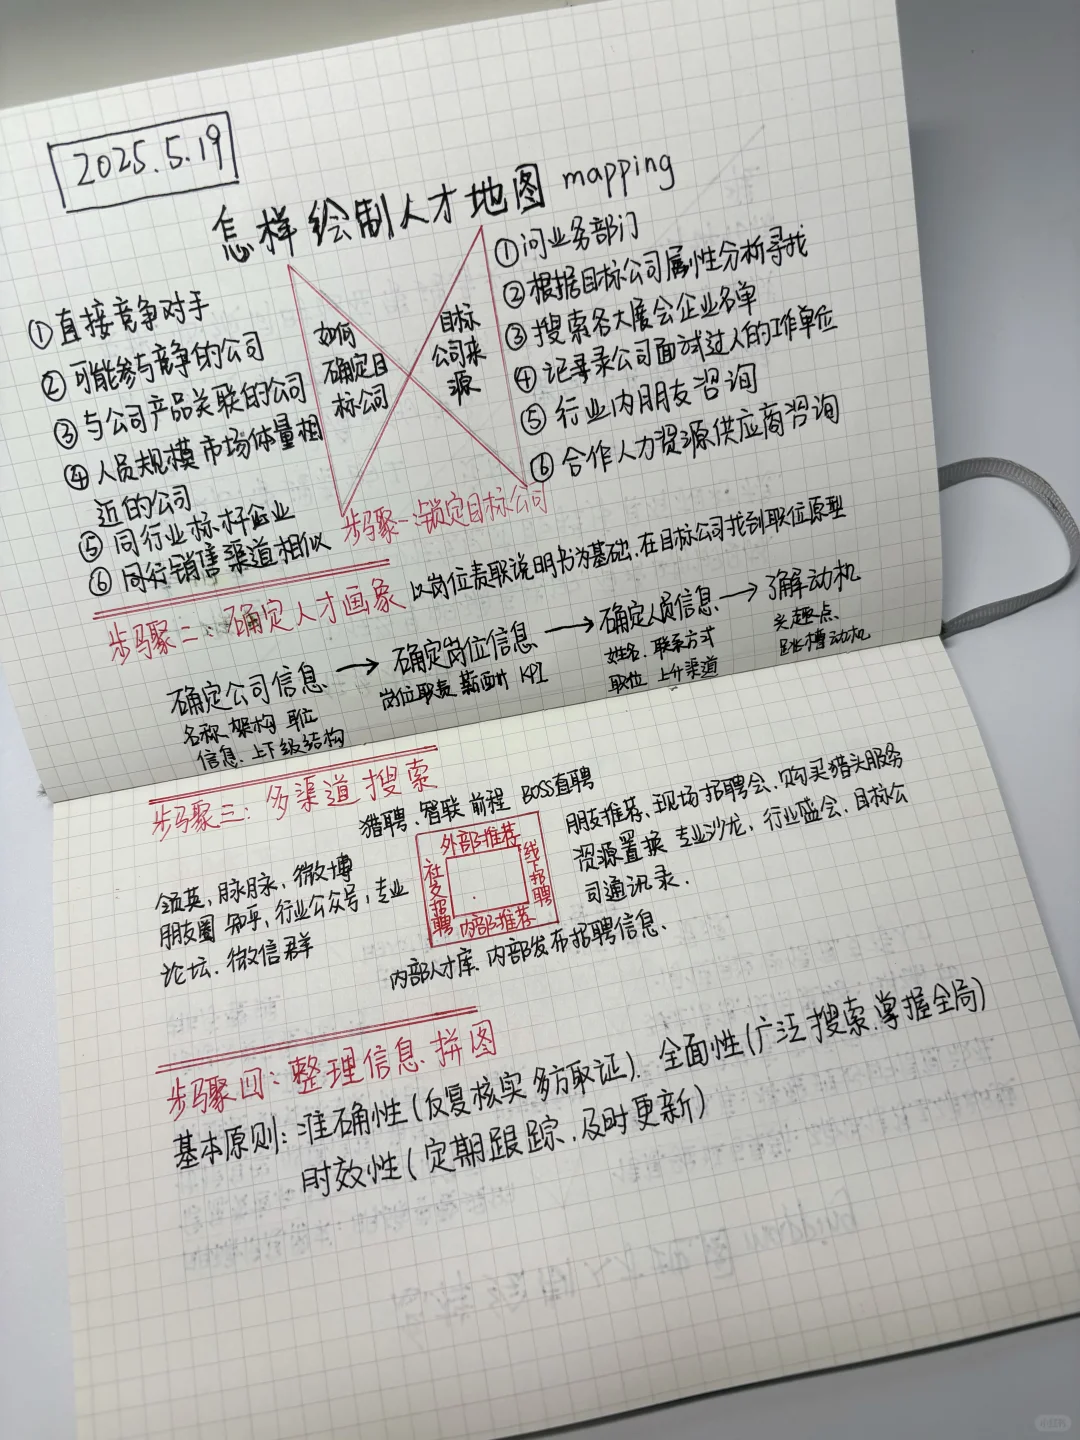 2025.5.19
怎样绘制人才地图 mapping
①直接竞争对手
②可能参与竞争的公司
③与公司产品关联的公司
④人员规模市场体量相
近的公司
⑤同行业标杆企业
⑥同行销售渠道相似
如何
确定目
标公司
目标
公司来
源
①问业务部门
②根据目标公司属性分析寻找
③搜索各大展会企业名单
④记录录公司面试过人的工作单位
⑤行业内朋友咨询
⑥合作人力资源供应商咨询
步骤一:锁定目标公司
步骤二:确定人才画象 以岗位责职说明书为基础,在目标公司找到职位原型
确定公司信息 → 确定岗位信息 → 确定人员信息 → 了解动机
名称 架构 职位
信息、上下级结构
岗位职责 薪酬 KPI
姓名、联系方式
职位 上升渠道
兴趣点、
跳槽动机
步骤三:多渠道搜索
猎聘、智联 前程 BOSS直聘
外部推荐
社交招聘
线下招聘
内部推荐
领英,脉脉,微博
朋友圈 知乎,行业公众号,专业
论坛、微信群
朋友推荐、现场招聘会、购买猎头服务
资源置换 专业沙龙,行业盛会、目标公
司通讯录.
内部人才库、内部发布招聘信息、
步骤四:整理信息、拼图
基本原则:准确性(反复核实 多方取证)、全面性(广泛搜索、掌握全局)
时效性(定期跟踪、及时更新)